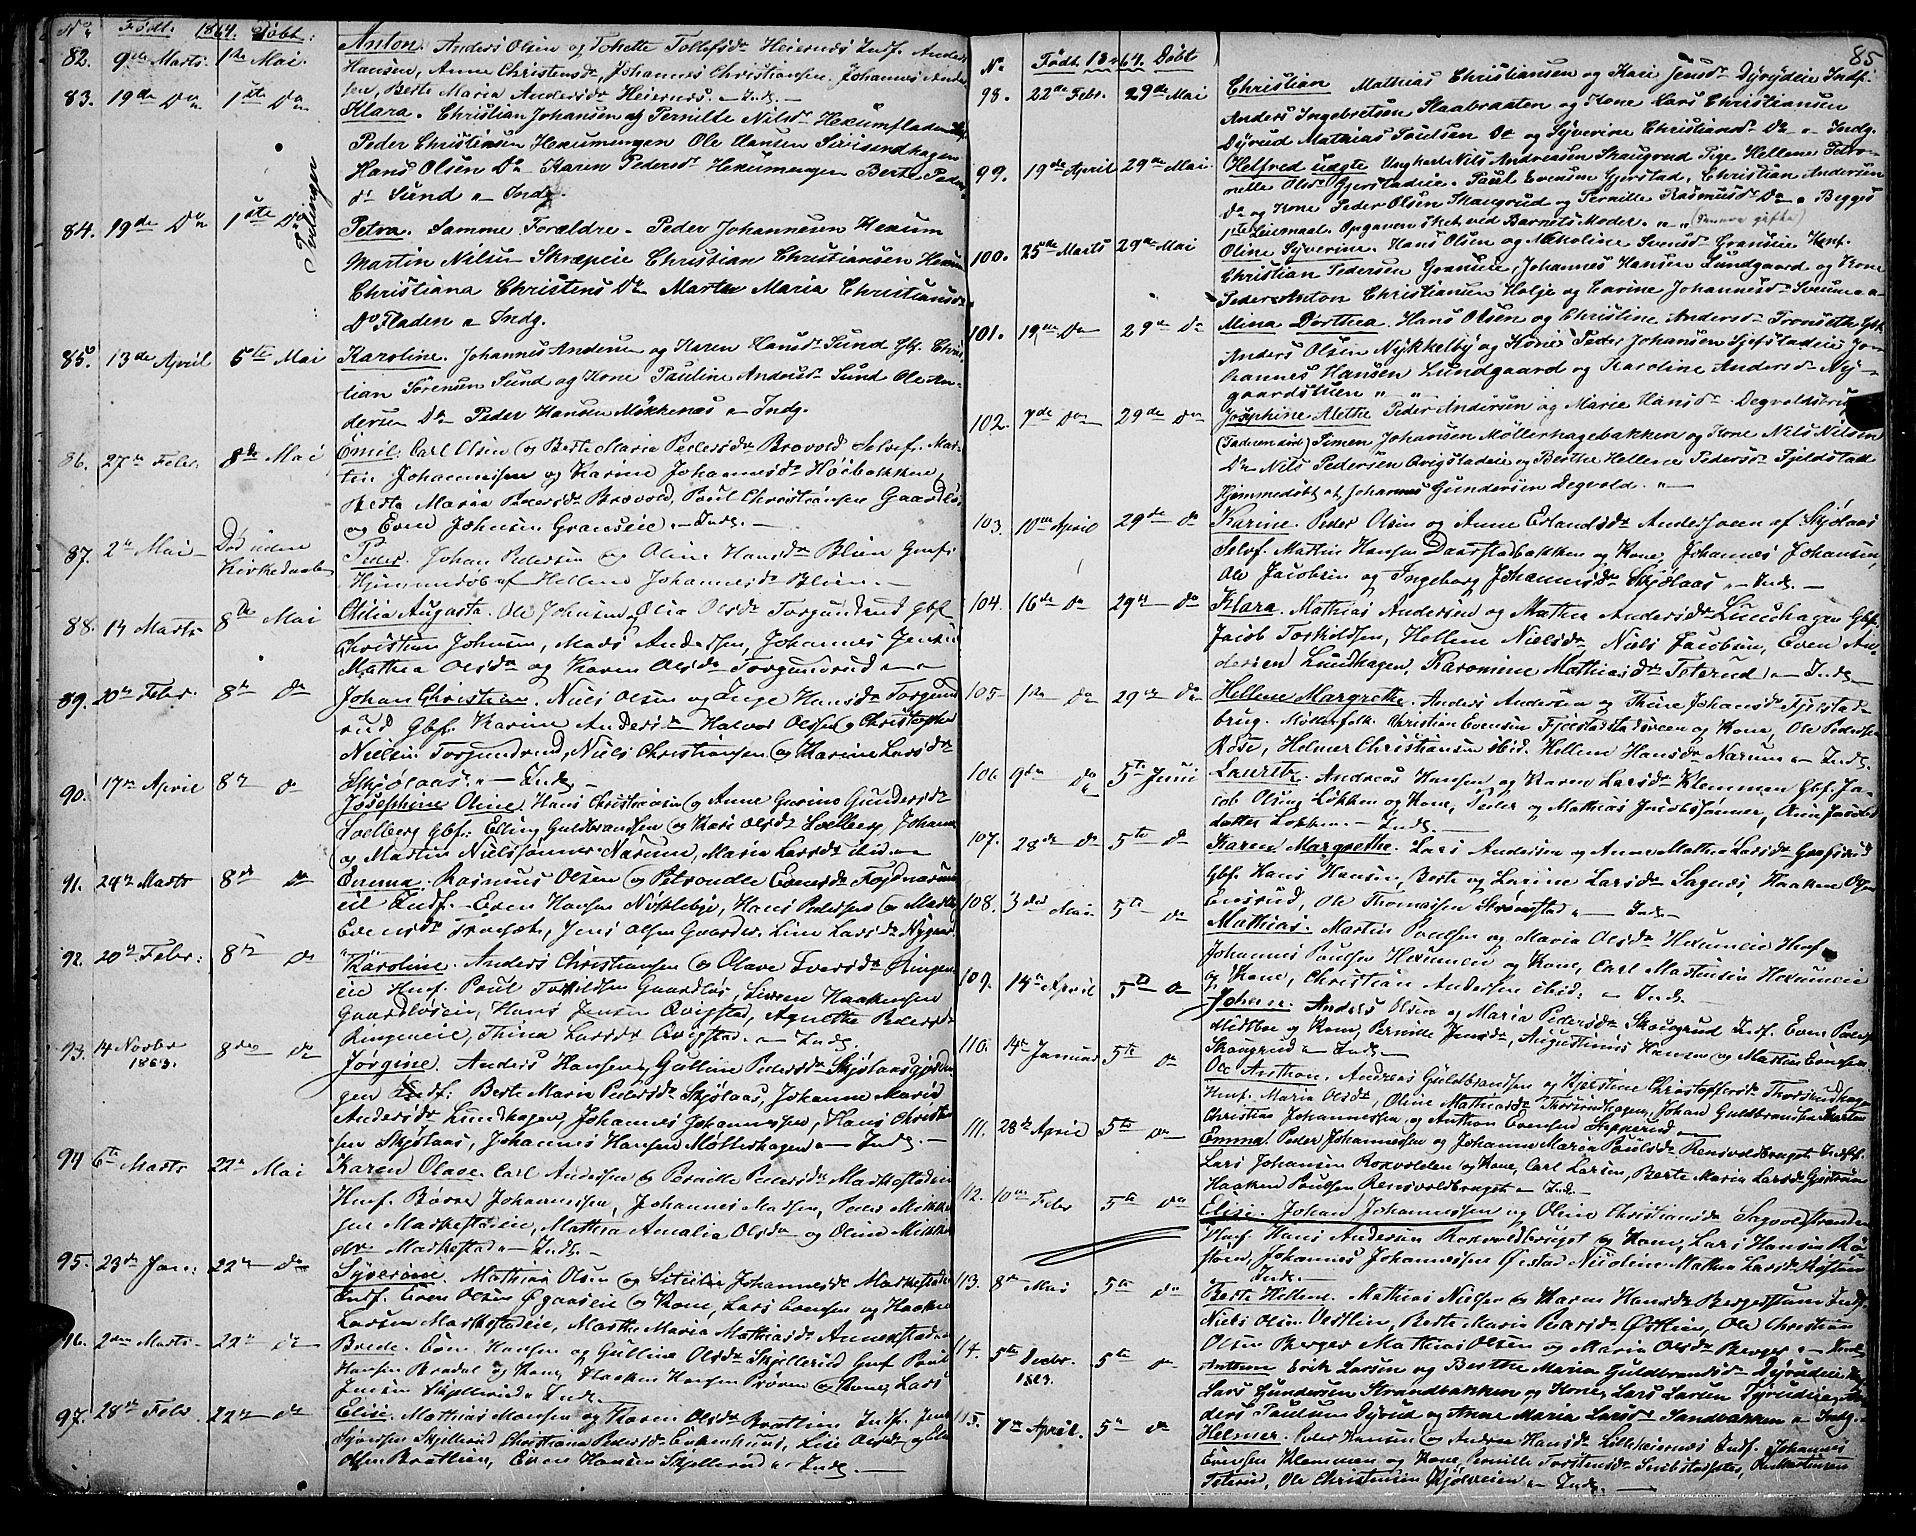 No. Født. 1864. Døbt:
82. 9de Marts 1ste Mai. Anton. Anders Olsen og Tohette Tollefsdr Heiernæs Indf. Anders
Hansen, Anne Christensdr, Johannes Christiansen, Johannes Ander-
sen, Berte Maria Andersdr Heiernæs. — Indg.
83. 19de Do 1ste Do Klara. Christian Johansen og Pernille Nilsdr Hexumfladen
Tvillinger
Peder Christiansen Hexumengen Ole Hansen
Hans Olsen Do Karen Pedersdr Hexumengen Berte Peders-
dr Sund — Indg.
84. 19de Do 1ste Do Petra. Samme Forældre. Peder Johannesen Hexum
Martin Nilsen Skræpeie Christian Christiansen Hexum
Christiana Christensdr Marte Maria Christiansdr
Do Fladen — Indg.
85. 13de April 5te Mai Karoline. Johannes Andersen og Karen Hansdr Sund Chris-
tian Sørensen Sund og Kone Pauline Andersdr Sund Ole An-
dersen Do Peder Hansen Møkkenæs — Indg.
86. 27de Febr. 8de Mai Emil. Carl Olsen og Berte Maria Pedersdr Brovold Selvf. Mar-
tin Johannessen og Karine Johannesdr Høibakken,
Berte Maria Pedersdr Brovold, Poul Christiansen Gaardløs
og Even Johnsen Granseie. — Indg. —
87. 2de Mai — Død uden Kirkedaab Peder. Johan Pedersen og Oline Hansdr Blien
Hjemmedøbt af Hellene Johannesdr Blien. —
88. 14 Marts 8de Mai Olia Augusta. Ole Johnsen og Olia Olsdr Torgundrud Gbf.
Christian Johnsen, Mads Andersen, Johannes Jensen
Mathea Olsdr og Karen Olsdr Torgundrud —
89. 20de Febr. 8de do Johan Christian. Niels Olsen og Inge Hansdr Torgund-
rud Gbf. Karine Andersdr Halvor Olsen og Christopher
Nielsen Torgundrud, Niels Christiansen og Karine Larsdr
Skjølaas. — Indg. —
90. 17de April 8de do Josephine Oline. Hans Christiansen og Anne Gurine Gundersdr
Soelberg Gbf: Elling Guldbrandsen og Kari Olsdr Soelberg, Johannes
og Martin Nielssønner Narum, Maria Larsdr ibid —
91. 24de Marts 8de do Emma. Rasmus Olsen og Petronelle Evensdr
eie Indf. Even Hansen Nøkleby, Hans Pedersen og Marthe
Evensdr Tronset, Jens Olsen Line Larsdr
92. 20de Febr: 8de do Karoline. Anders Christiansen og Olave Iversdr Ringen-
eie Huf. Poul Torkildsen Gaardløs, Haakensen
Gaardløseie, Hans Jensen Qvigstad, Agnethe Pedersdr
Ringeneie, Thina Larsdr Qvigstad. — Indg. —
93. 14 Novbr 1863. 8de do Jørgine. Anders Hansen, Gulline Pedersdr Skjølaas
gen Indf: Berte Maria Pedersdr Skjølaas, Johanne Maria
Andersdr Lundhagen, Johannes Johannessen, Hans Christian-
sen Skjølaas, Johannes Hansen Møllerhagen — Indg. —
94 6te Marts 22de Mai Karen Olave. Carl Andersen og Pernille Pedersdr Markestadeie
Huf. Børre Johannessen, Johannes Madsen, Peder Mikkel-
sen Markestadeie, Mathea Amalia Olsdr og Oline Mikkels-
dr Markestad — Indg. —
95. 23de Jan: 22de do Syverine. Mathias Olsen og Sicilia Johannesdr Markestadeie
Indf. Even Olsen Øgaaseie og Kone, Lars Evensen og Haaken
Larsen Markestadeie, Marthe Maria Mathiasdr
96. 2den Marts 22de do Brede. Even Hansen og Gulline Olsdr Skjellerud Poul
Hansen og Kone, Haaken Hansen og Kone, Lars
Jensen Skjellerud — Indg —
97. 28de Febr. 22de do Elise. Mathias Hansen og Karen Olsdr Bratlien Indf. Jens
Syversen Skjellerud Christiana Pedersdr Lise Olsdr og
Olsen Bratlien, Even Hansen Skjellerud — Indg. —
85
No Født 1864. Døbt
98. 22de Febr. 29de Mai Christian Mathias Christiansen og Kari Jensdr Dyrudeie Indf:
Anders Ingebretsen Slaabraaten og Kone Lars Christiansen
Dyrud Mathias Paulsen Do og Syverine Christiansdr Do — Indg.
99. 19de April 29de Mai Helfred uægte Ungkarl Nils Andreasen Skaugrud Pige Hellene Petro-
nelle Olsdr Gjerstadeie. Paul Evensen Gjerstad, Christian Andersen
Do og Kone Peder Olsen Skaugrud og Pernille Rasmusdr Do — Begges
1ste Leiermaal. Opgaven sket ved Barnets Moder. „ „
100. 25de Marts 29de Mai Oline Syverine. Hans Olsen og Nikoline Svensdr Granseie Huf.
Christian Pedersen Granseie, Johannes Hansen Lundgaard og Kone
Peder Anton Christiansen Holje og Carine Johannesdr
101. 19de Do 29de Do Mina Dorthea. Hans Olsen og Christine Andersdr Tronseth Gbf.
Anders Olsen Nykkelby og Kone Peder Johansen Jo-
hannes Hansen Lundgaard og Karoline Andersdr Ny-
gaardstuen „ „
102. 7de Do 29de Do Josephine Alethe Peder Andersen og Marie Hansdr Degvold
Simen Johansen Møllerhagebakken og Kone Nils Nilsen
Do Nils Pedersen Qvigstadeie og Berthe Hellene Pedersdr Fjeldstad
Hjemmedøbt af Johannes Gundersen Degvold. „ —
103. 10de April 29de do Karine. Peder Olsen og Anne Erlandsdr Andersveen af Skjølaas
Selvf. Mathis Hansen Daarstadbakken og Kone, Johannes Johansen,
Ole Jacobsen og Ingeborg Johannesdr Skjølaas — Indg. —
104. 16de do 29de do Klara. Mathias Andersen og Mathea Andersdr Lundhagen Gbf.
Jacob Torkildsen, Hellene Nielsdr Niels Jacobsen, Even An-
dersen Lundhagen, Karomine Mathiasdr Toterud — Indg. —
105 1ste Do 29de Do Hellene Margrethe. Anders Andersen og Thrine Johansdr Fjelstad-
brug. Møllerfolk. Christian Evensen Fjelstad og Kone, Ole Pedersen
Røse, Helmer Christiansen ibid. Hellene Hansdr Narum — Indg.
106. 9de Do 5te Juni Lauritz. Andreas Hansen og Karen Larsdr Klemmen Gbf. Ja-
cob Olsen Løkken og Kone, Peder og Mathias Jacobssønner, Jacobs-
datter Løkken. — Indg. —
107. 28de do 5te do Karen Margrethe. Lars Andersen og Anne Mathea Larsdr
Gbf. Hans Hansen, Berte og Larine Larsdr Sagnæs, Haaken Olsen
Ensrud, Ole Thomassen Strømstad — Indg. —
108. 3die Mai 5te do Mathias. Martin Poulsen og Maria Olsdr Hexumeie Huf.
Johannes Poulsen Hexumeie og Kone, Carl Martinsen Hexumeie
og Kone, Christian Andersen ibid: — Indg. —
109. 14de April 5te do Johan. Anders Olsen og Maria Pedersdr Skougrud Indf. Even Peders-
Midtbøe og Kone, Pernille Jensdr, Augustinus Hansen og Martin Evensen
Skougrud — Indg. —
110. 14de Januar 5te do Ole Anthon. Andreas Guldbrandsen og Kjerstine Christoffersdr Thorsrudhagen
Huf. Maria Olsdr, Oline Mathiasdr Thorsrudhagen, Johan Guldbrandsen
Christian Johannessen, og Anthon Evensen Stepperud —
111. 28de April 5te do Emma. Peder Johannessen og Johanne Maria Poulsdr Rensvoldbruget Indf.
Lars Johansen Roxvolden og Kone, Carl Larsen, Berte Maria Larsdr
Haaken Poulsen Rensvoldbruget — Indg. —
112. 10de Febr 5te do Elise. Johan Johannessen og Oline Christiansdr Sagvoldstranden
Huf Hans Andersen Roxvoldbruget og Kone, Lars Hansen Rø-
steen, Johannes Johannessen Nicoline Mathea Larsdr
Indg. —
113. 8de Mai 5te do Berte Hellene. Mathias Nielsen og Karen Hansdr Bergerstuen Indf.
Niels Olsen Vestlien, Berte Maria Pedersdr Østlien, Ole Christian
Olsen Berger Mathias Olsen og Maria Olsdr Berger — Indg.
114. 5te Decbr. 1863. 5te do Anthon Erik Larsen og Berthe Maria Guldbrandsdr Dyrudeie
Lars Gundersen Strandbakken og Kone, Lars Larsen Dyrudeie, An-
ders Paulsen Dyrud og Anne Maria Larsdr Sandbakken — Indg.
115. 7de April. 5te do Helmer. Peder Hansen og Andrea Hansdr Lilleheiernæs Indf. Johannes
Evensen Klemmen og Kone, Pernille Torstensdr
Toterud, Ole Christiansen — Indg. —